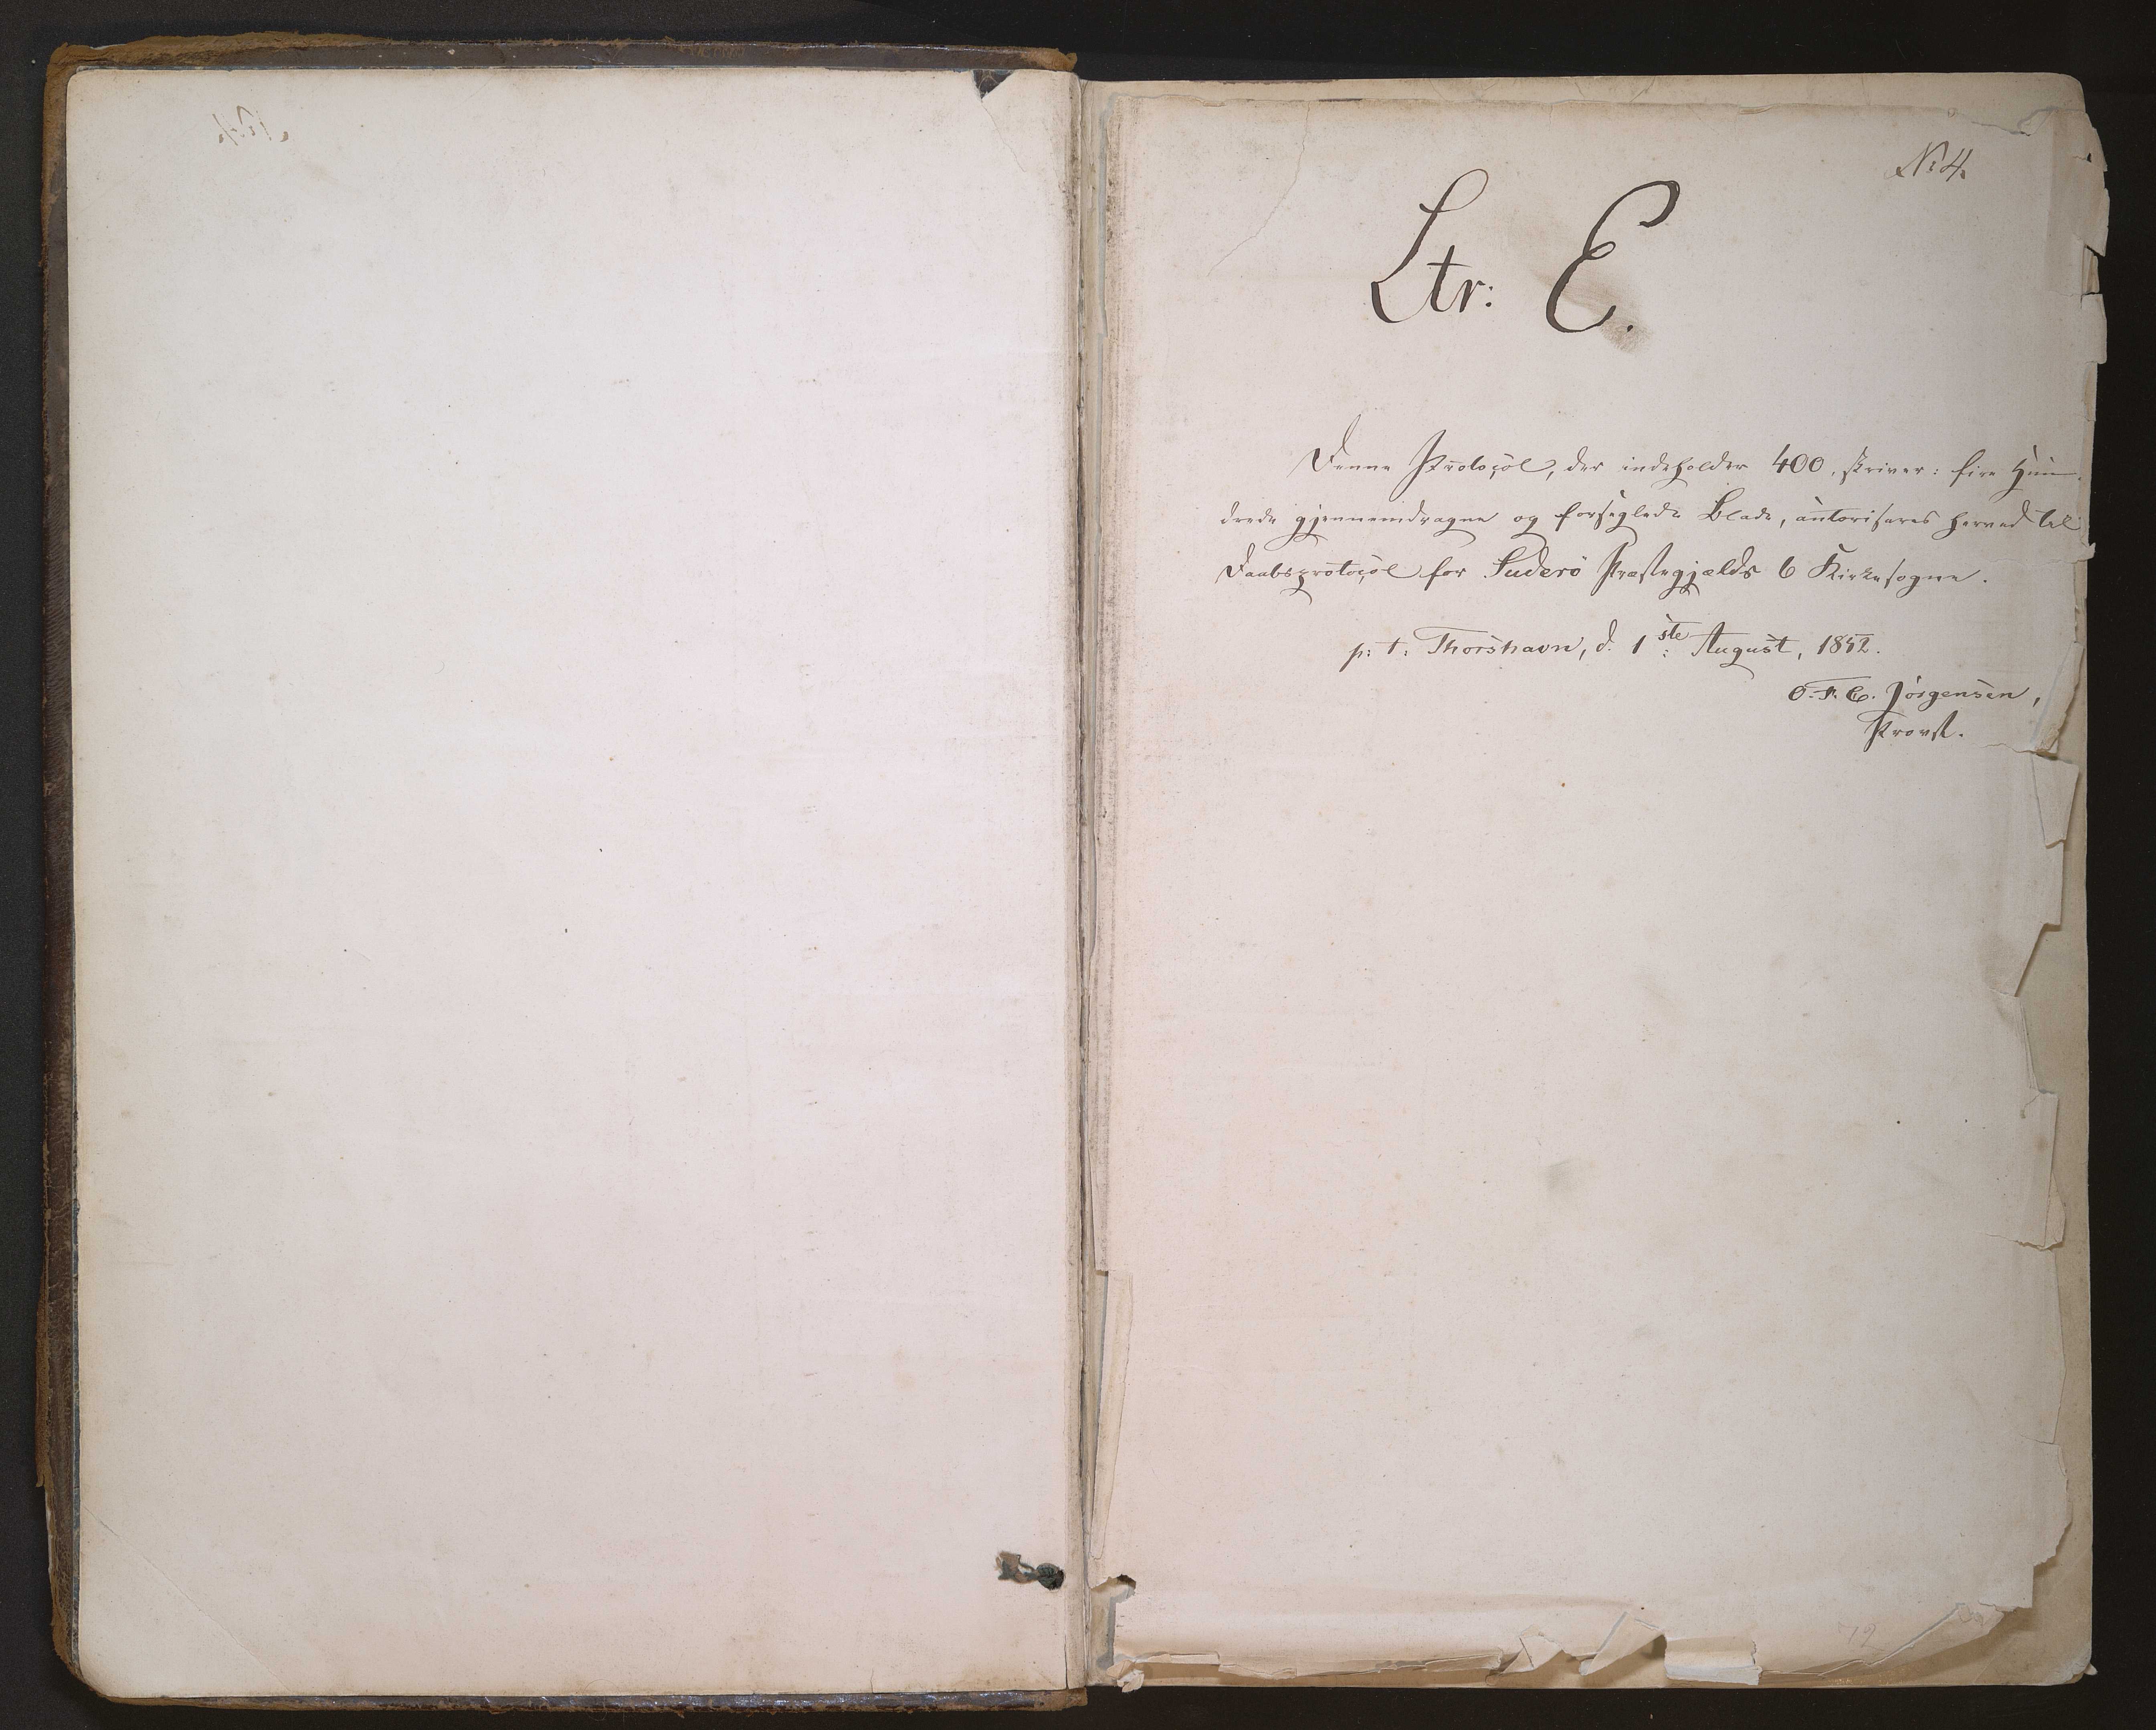 N: 4.
Ltr: E.
Denne Protocol, der indeholder 400, skriver: fire Hun-
drede gjennemdragne og forseglede Blade, autoriseres herved til
Daabsprotocol for Suderö Præstegjælds 6 Kirkesogne.
p: t: Thorshavn, d. 1ste August, 1852.
O. F. C. Jörgensen,
Provst.